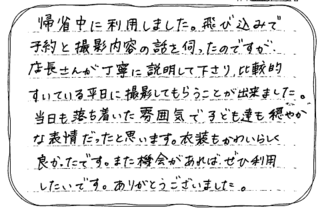 帰省中に利用しました。飛び込みで
予約と撮影内容の話を伺ったのですが、
店長さんが丁寧に説明して下さり、比較的
すいている平日に撮影してもらうことが出来ました。
当日も落ち着いた雰囲気で子ども達も穏やか
な表情だったと思います。衣装もかわいらしく
良かったです。また機会があれば、ぜひ利用
したいです。ありがとうございました。